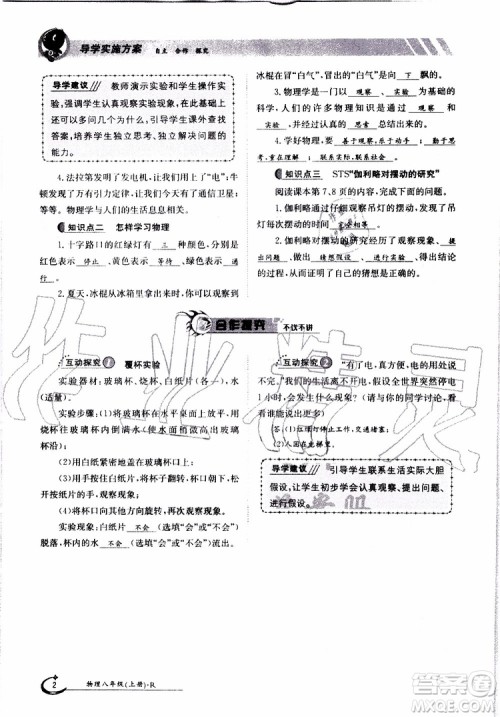 导学实施方案 自主 合作 探究
导学建议 教师演示实验和学生操作实
验,强调学生认真观察实验现象,在此基础上
提出问题、分析问题,引导学生课外收集资料
查找答案,培养学生独立思考、独立解决问题的
能力。
4.法拉第发明了发电机,让我们用上了“电”;牛
顿发现了万有引力定律,让我们今天有了通信卫星;
等等。物理学与人们的生活息息相关。
知识点二 怎样学习物理
1.十字路口的红绿灯有 三 种颜色,分别是
红色表示 停止 、黄色表示 等待 、绿色表示 通
行 。
2.夏天,冰棍从冰箱里拿出来,你会看到
冰棍冒“白气”,冒出的“白气”是向 下 飘的。
3.物理学是一门以 观察 、 实验 为基础的
科学,人们的许多物理知识是通过 观察 和
实验 ,经过认真的 思索 总结出来的。
4.学好物理,要 善于观察,乐于动手 ; 勤于思
考,重在理解 ; 联系实际,联系社会 。
知识点三 STS“伽利略对摆动的研究”
阅读课本第7、8页的内容,完成下面的问题。
1.伽利略通过仔细观察吊灯的摆动,发现了吊
灯摆动的规律。
2.伽利略对摆动的研究经历了观察现象、 提
出问题 、 猜想假设 、 观察 、 实验 等过
程,最后证实了自己的猜想是正确的。
合作探究 不议不讲
互动探究1 覆杯实验
实验器材:玻璃杯、烧杯、白纸片(各一),水
(适量)
实验步骤:(1)将玻璃杯在水平桌面上放平,用
烧杯往玻璃杯里慢慢地倒水,直至水面稍稍高出玻璃
杯杯沿;
(2)用白纸片轻轻地平移至玻璃杯口上;
(3)将杯口向下,移开手,观察现象;
(4)将杯口向各个方向转一转,观察现象。
实验现象:白纸片 不会 (选填“会”或“不会”)
脱落,杯内的水 不会 (选填“会”或“不会”)流出。
互动探究2
1小时,会发生什么现象?(请你与同学讨论,大胆
假设)
答:(1)红绿灯停止工作,交通堵塞;
(2)人困在电梯里。
导学建议 引导学生联系生活实际大胆
假设,让学生初步学会认真观察、提出问题、
进行假设。
2 物理八年级(上册)-R